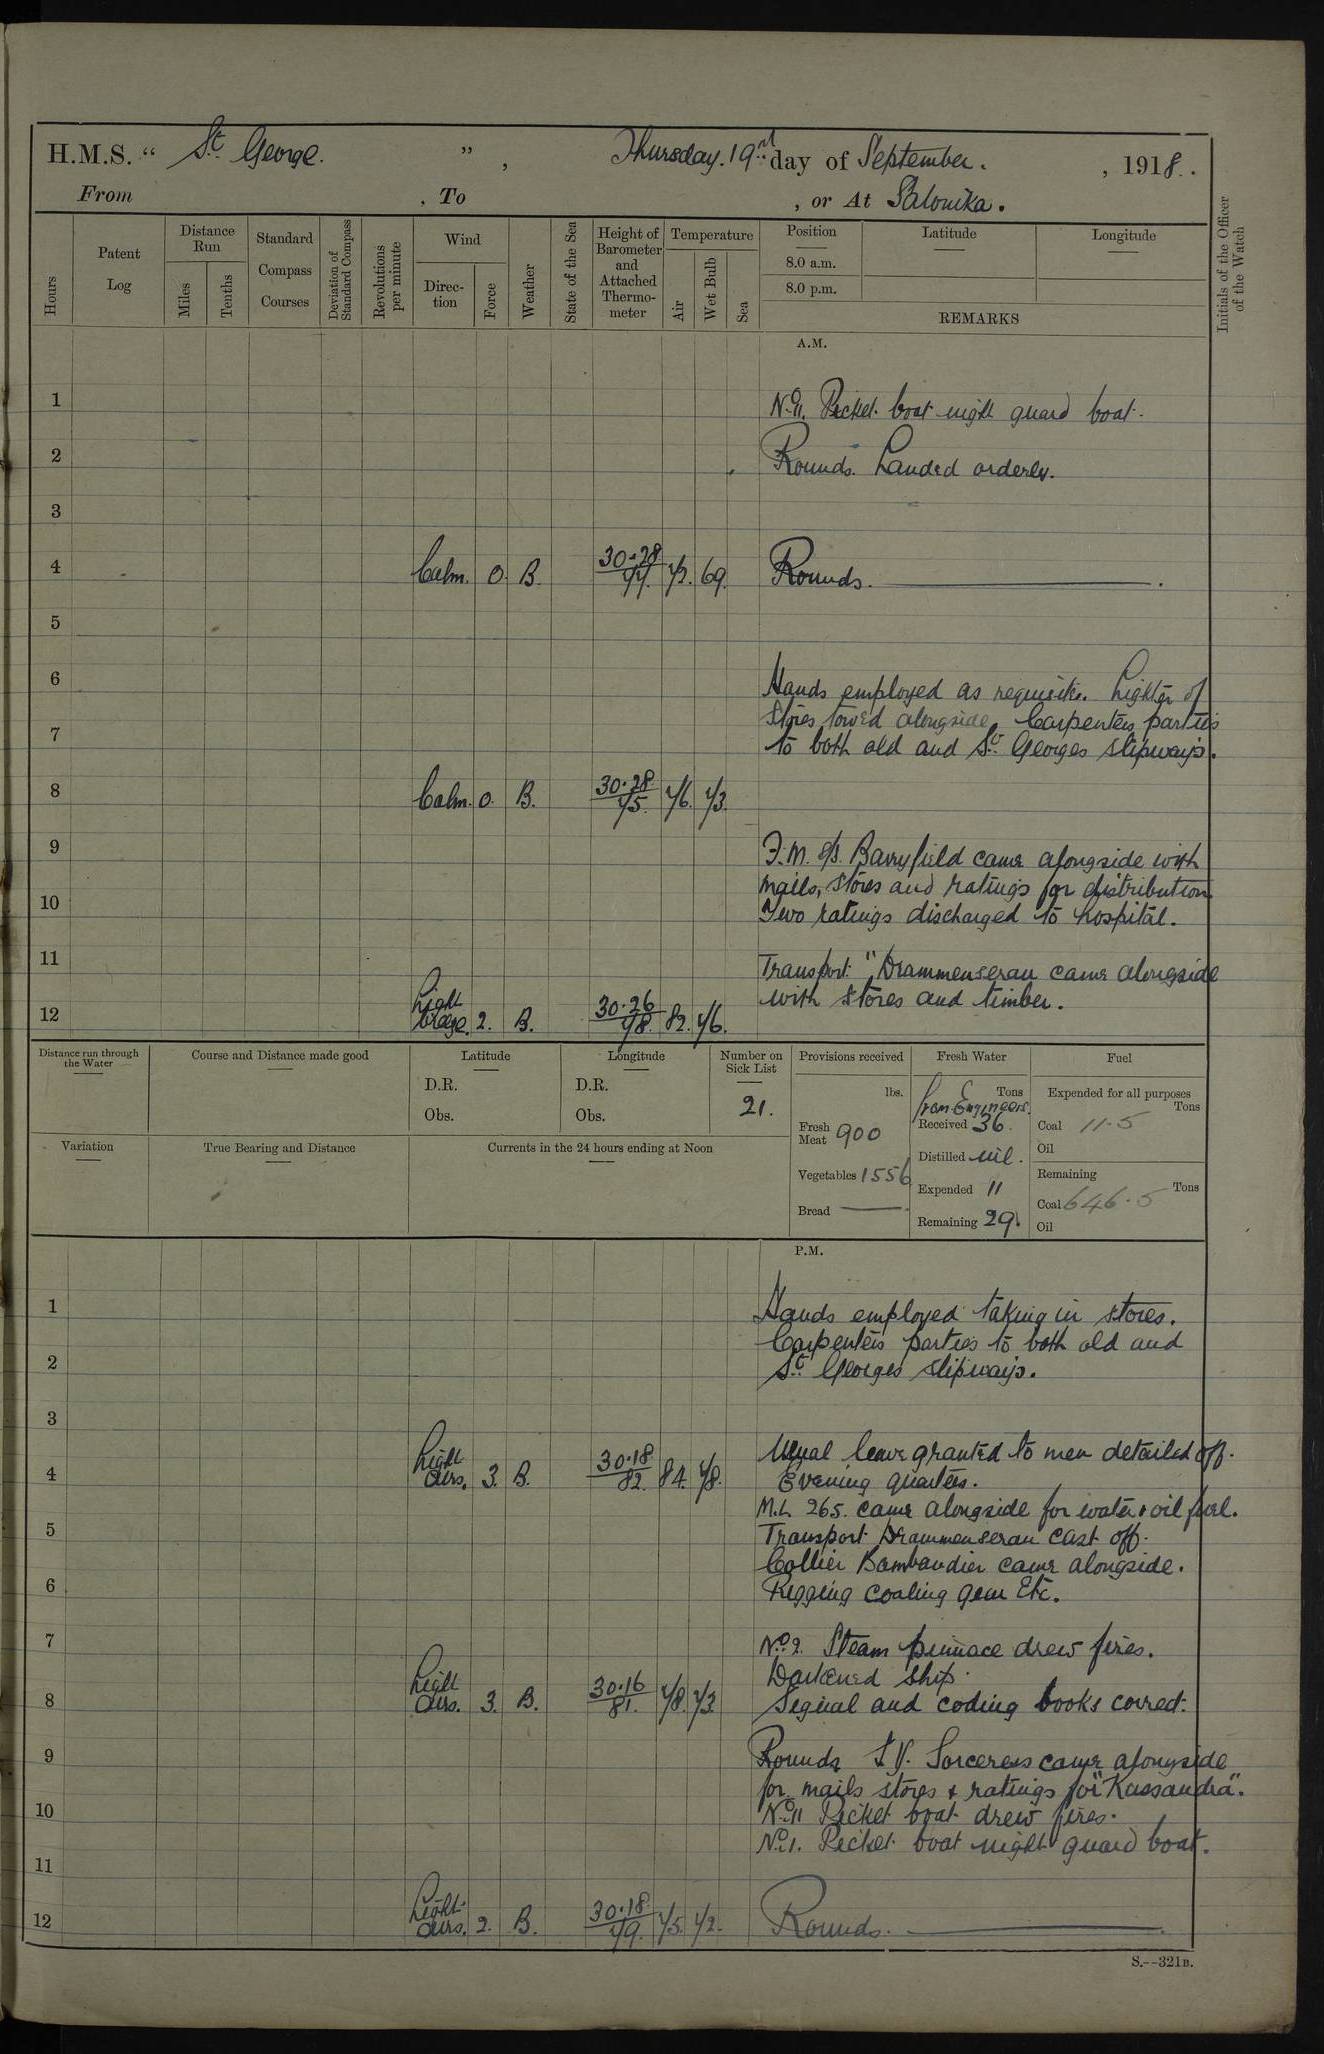 H.M.S. “ St George. ” , Thursday. 19nd day of September. , 1918.
From , To , or At Salonika.
Hours
Patent Log
Distance Run
Miles
Tenths
Standard Compass Courses
Deviation of Standard Compass
Revolutions per minute
Wind
Direction
Force
Weather
State of the Sea
Height of Barometer and Attached Thermometer
Temperature
Air
Wet Bulb
Sea
Position
8.0 a.m.
8.0 p.m.
Latitude
Longitude
REMARKS
Initials of the Officer of the Watch
A.M.
1 No 11. Picket boat night guard boat.
2 Rounds. Landed orderly.
3
4 Calm. 0. B. 30.28 77. 72. 69. Rounds.
5
6 Hands employed as requisite. Lighter of
Stores towed alongside. Carpenters parties
7 to both old and St. Georges slipways.
8 Calm. 0. B. 30.28 75. 76. 73.
9 F.M. S/S. Barryfield came alongside with
mails, stores and ratings for distribution
10 Two ratings discharged to hospital.
11 Transport "Drammenseran came alongside
with stores and timber.
12 Light breeze. 2. B. 30.26 78. 82. 76.
Distance run through the Water
Course and Distance made good
Latitude
D.R.
Obs.
Longitude
D.R.
Obs.
Number on Sick List
21.
Provisions received
lbs.
Fresh Meat 900
Vegetables 1556
Bread
Fresh Water
Tons
from Engineers.
Received 36.
Distilled nil.
Expended 11
Remaining 29.
Fuel
Expended for all purposes
Tons
Coal 11.5
Oil
Remaining
Tons
Coal 646.5
Oil
Variation
True Bearing and Distance
Currents in the 24 hours ending at Noon
P.M.
1 Hands employed taking in stores.
Carpenters parties to both old and
2 St. Georges slipways.
3
Usual leave granted to men detailed off.
4 Light Airs. 3. B. 30.18 82. 84. 78. Evening quarters.
M.L 265. came alongside for water & oil fuel.
5 Transport Drammenseran cast off.
Collier Bambandier came alongside.
6 Rigging coaling gear Etc.
7 No 2. Steam pinnace drew fires.
Darkened ship.
8 Light Airs. 3. B. 30.16 81. 78. 73. Signal and coding books correct.
9 Rounds. T.V. Sorceress came alongside
for mails stores & ratings for "Kassandra".
10 No 11 Picket boat drew fires.
No 1. Picket boat night guard boat.
11
12 Light Airs. 2. B. 30.18 79. 75. 72. Rounds.
S.--321B.